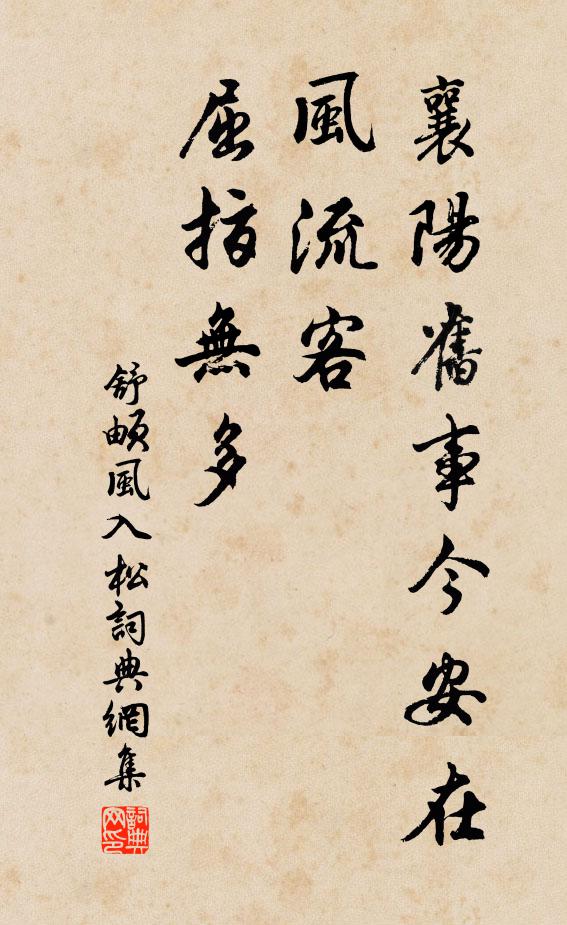 襄陽舊事今安在
風流客
屈指無多
舒頔風入松詞典網集
詞典网印